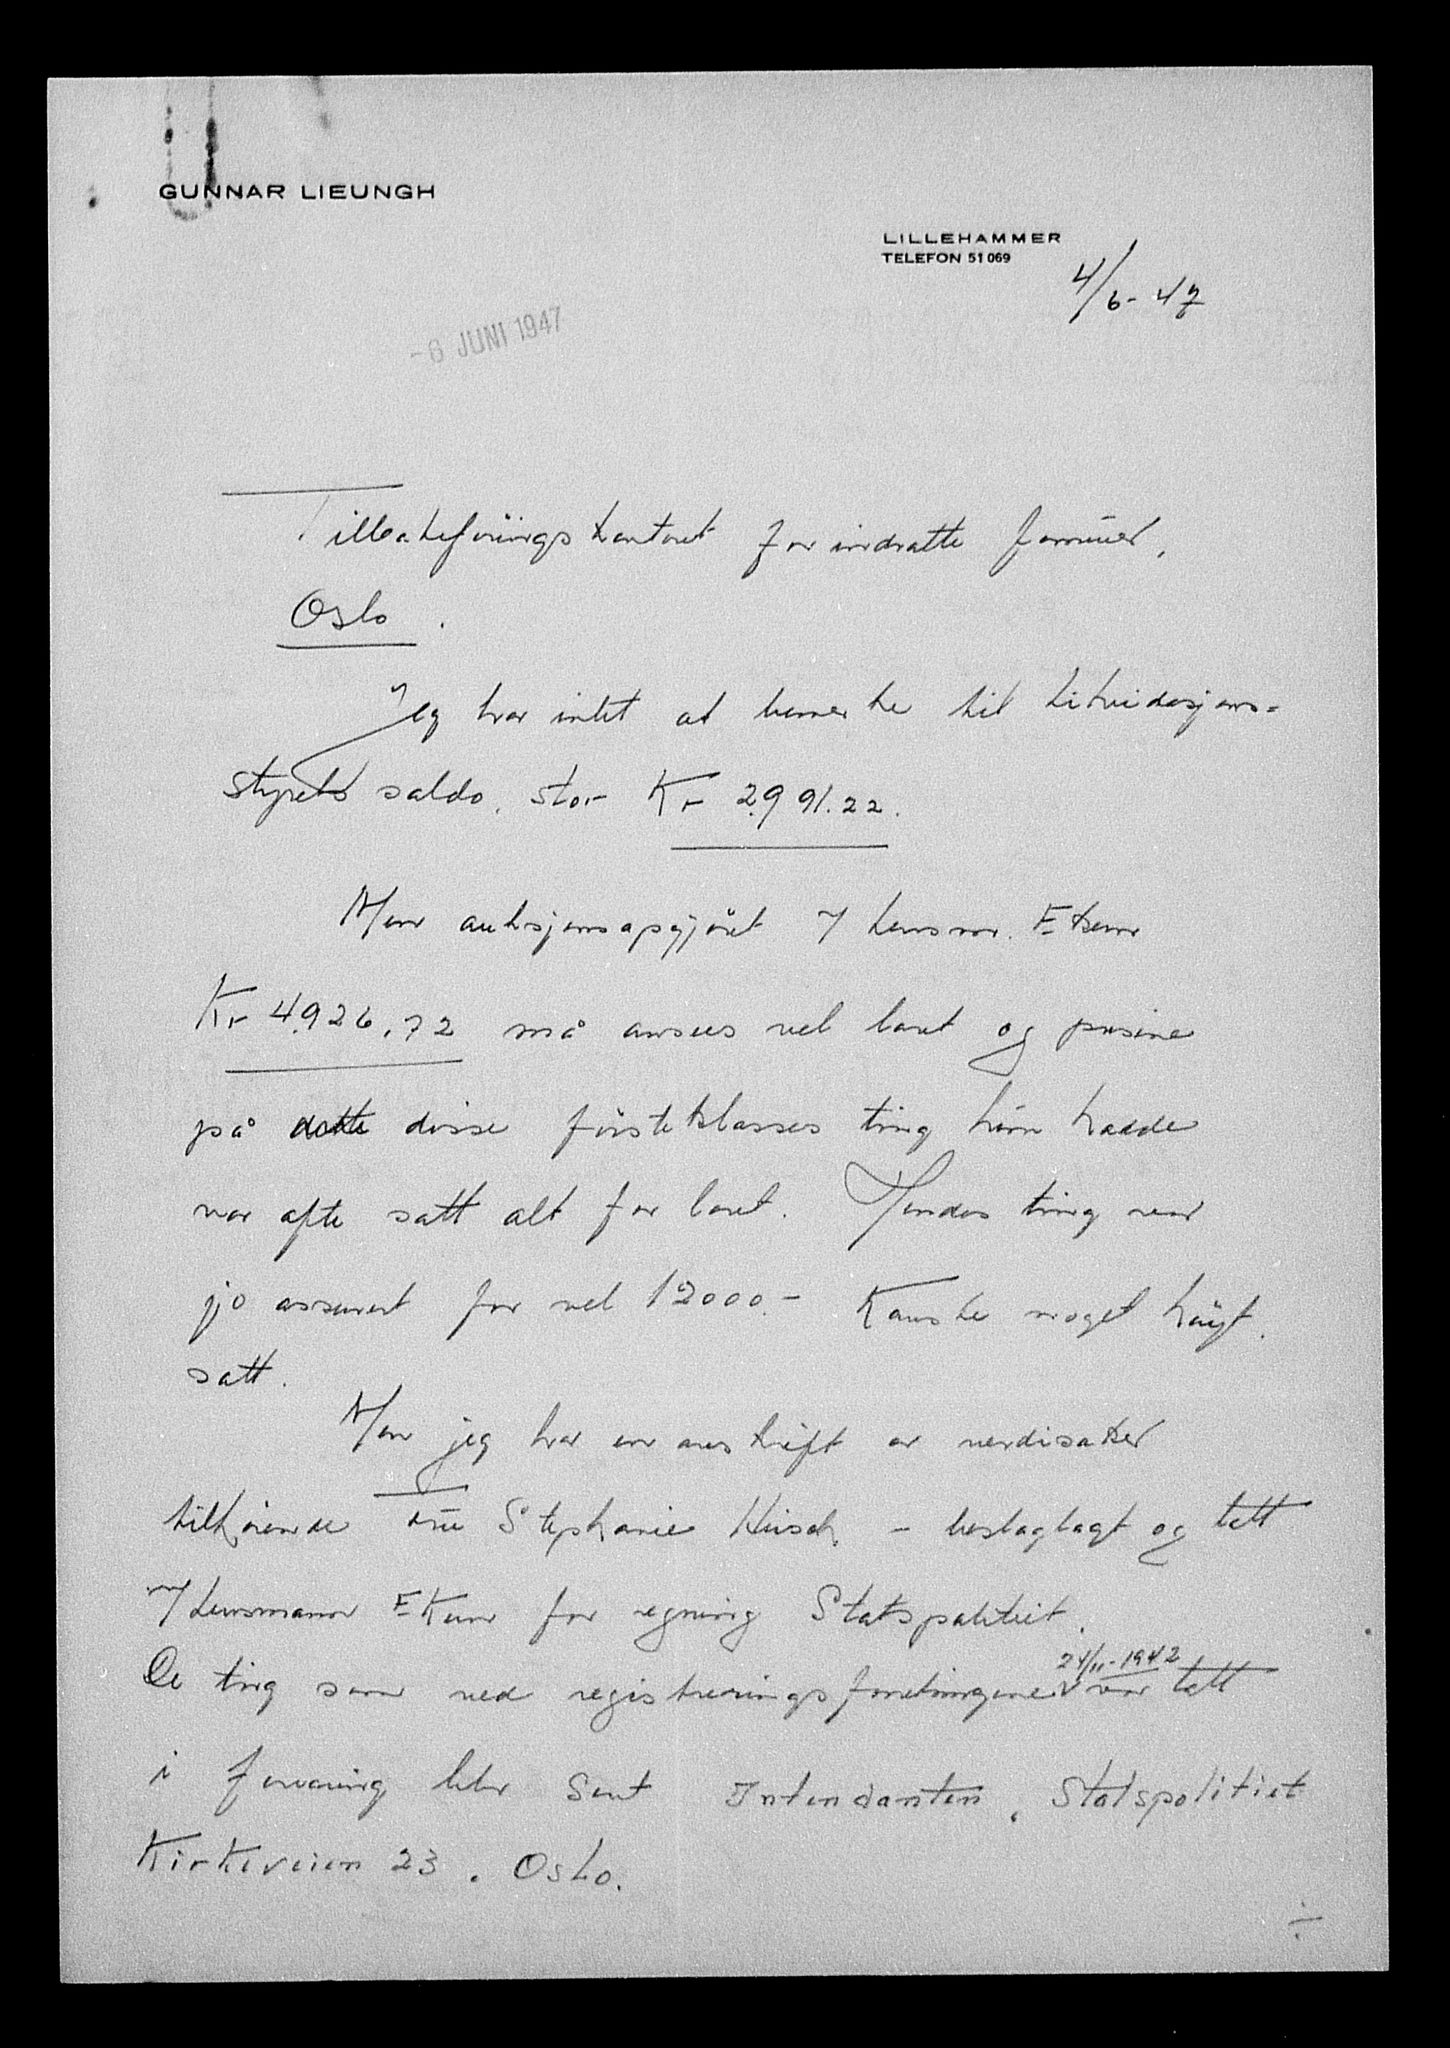 GUNNAR LIEUNGH
LILLEHAMMER
TELEFON 51 069
4/6-47
-6 JUNI 1947
Tilbakeføringskontoret for inndratte formuer,
Oslo.
Jeg har intet at bemerke til likvidasjons-
styrets saldo, stor Kr 2991.22.
Men auksjonsopgjöret v/ lensm. Ekern
Kr 4926,72 må ansees vel lavt og prisene
på dette disse försteklasses ting hun hadde
var ofte satt alt for lavt. Hendes ting var
jo assurert for vel 12000.- Kanske noget höyt
satt.
Men jeg har en avskrift av verdisaker
tilhörende Fru Stephanie Hirsch - beslaglagt og tatt
v/ Lensmann Ekern for regning Statspolitiet.
De ting som ved registreringsforretningene 24/11-1942 var tatt
i forvaring blev sent Intendanten, Statspolitiet
Kirkeveien 23. Oslo.